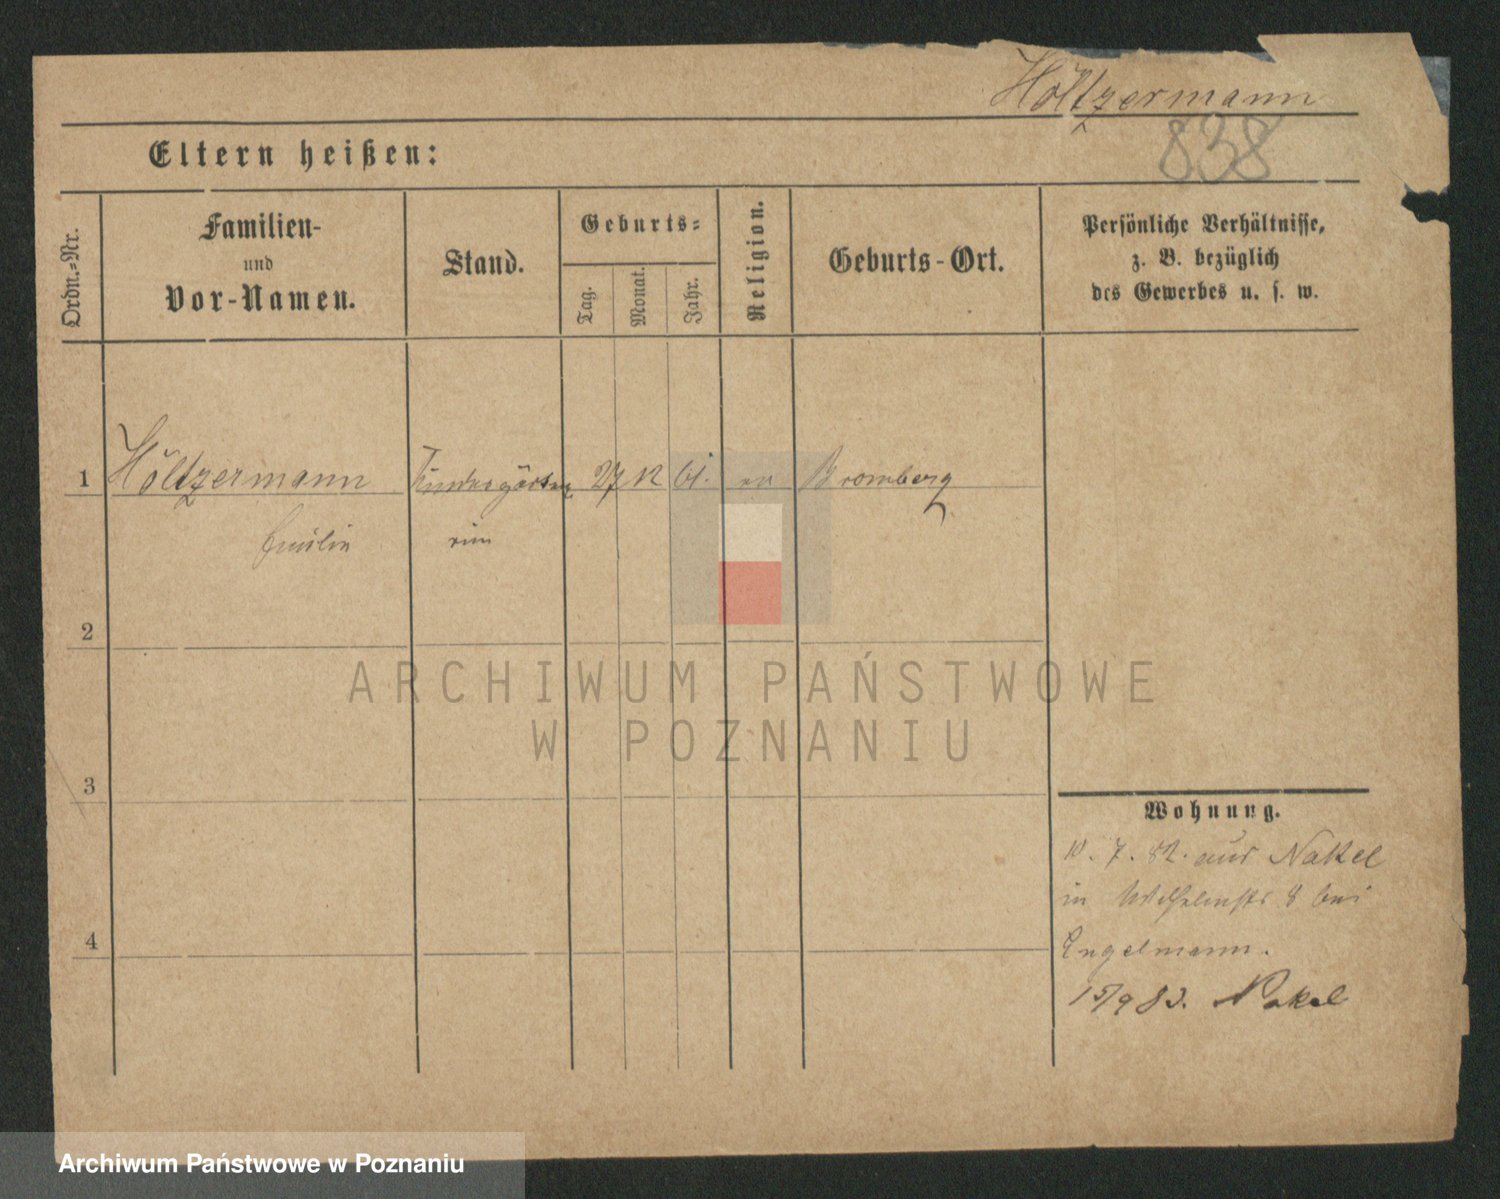 Höltzermann
838
Eltern heißen:
Ordn.-Nr.
Familien-
und
Vor-Namen.
Stand.
Geburts-
Tag.
Monat.
Jahr.
Religion.
Geburts-Ort.
Persönliche Verhältnisse,
z. B. bezüglich
des Gewerbes u. s. w.
1 Höltzermann Kindergärtne 27 12 61. ev Bromberg
Emilie rin
2
ARCHIWUM PAŃSTWOWE
W POZNANIU
3
Wohnung.
10. 7. 82. aus Nakel
in Wilhelmstr 8 bei
4
Engelmann.
15/9 83. Nakel
Archiwum Państwowe w Poznaniu